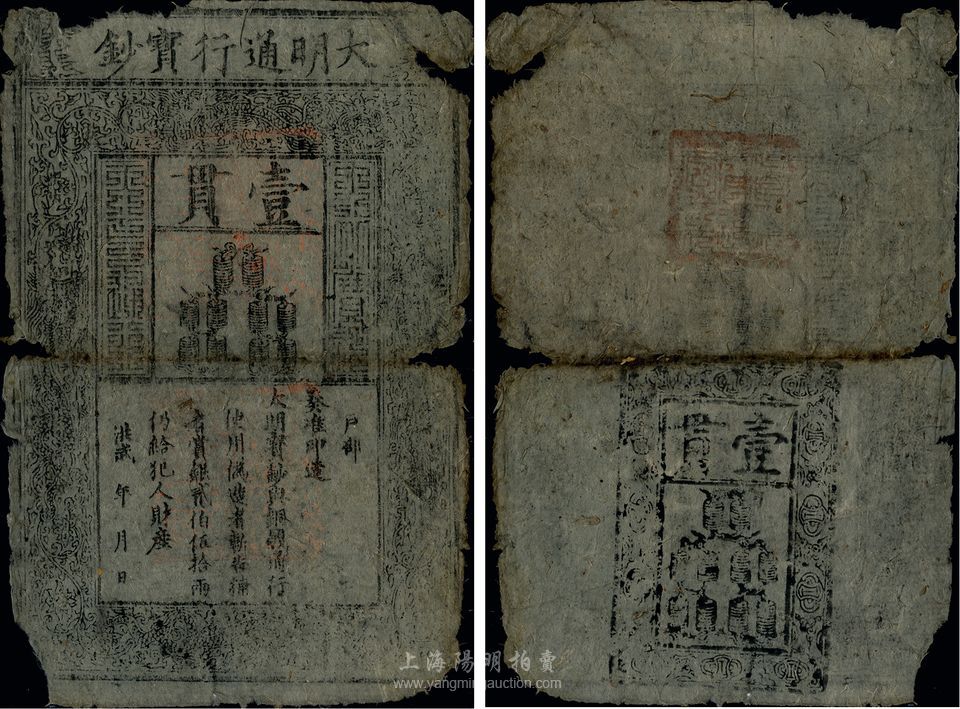 大明通行寶鈔
壹貫
户部
奏准印造
大明寶鈔與銅錢通行
使用偽造者斬告捕
者賞銀貳伯伍拾兩
仍給犯人財產
洪武 年 月 日
壹貫
上海陽明拍賣
www.yangmingauction.com